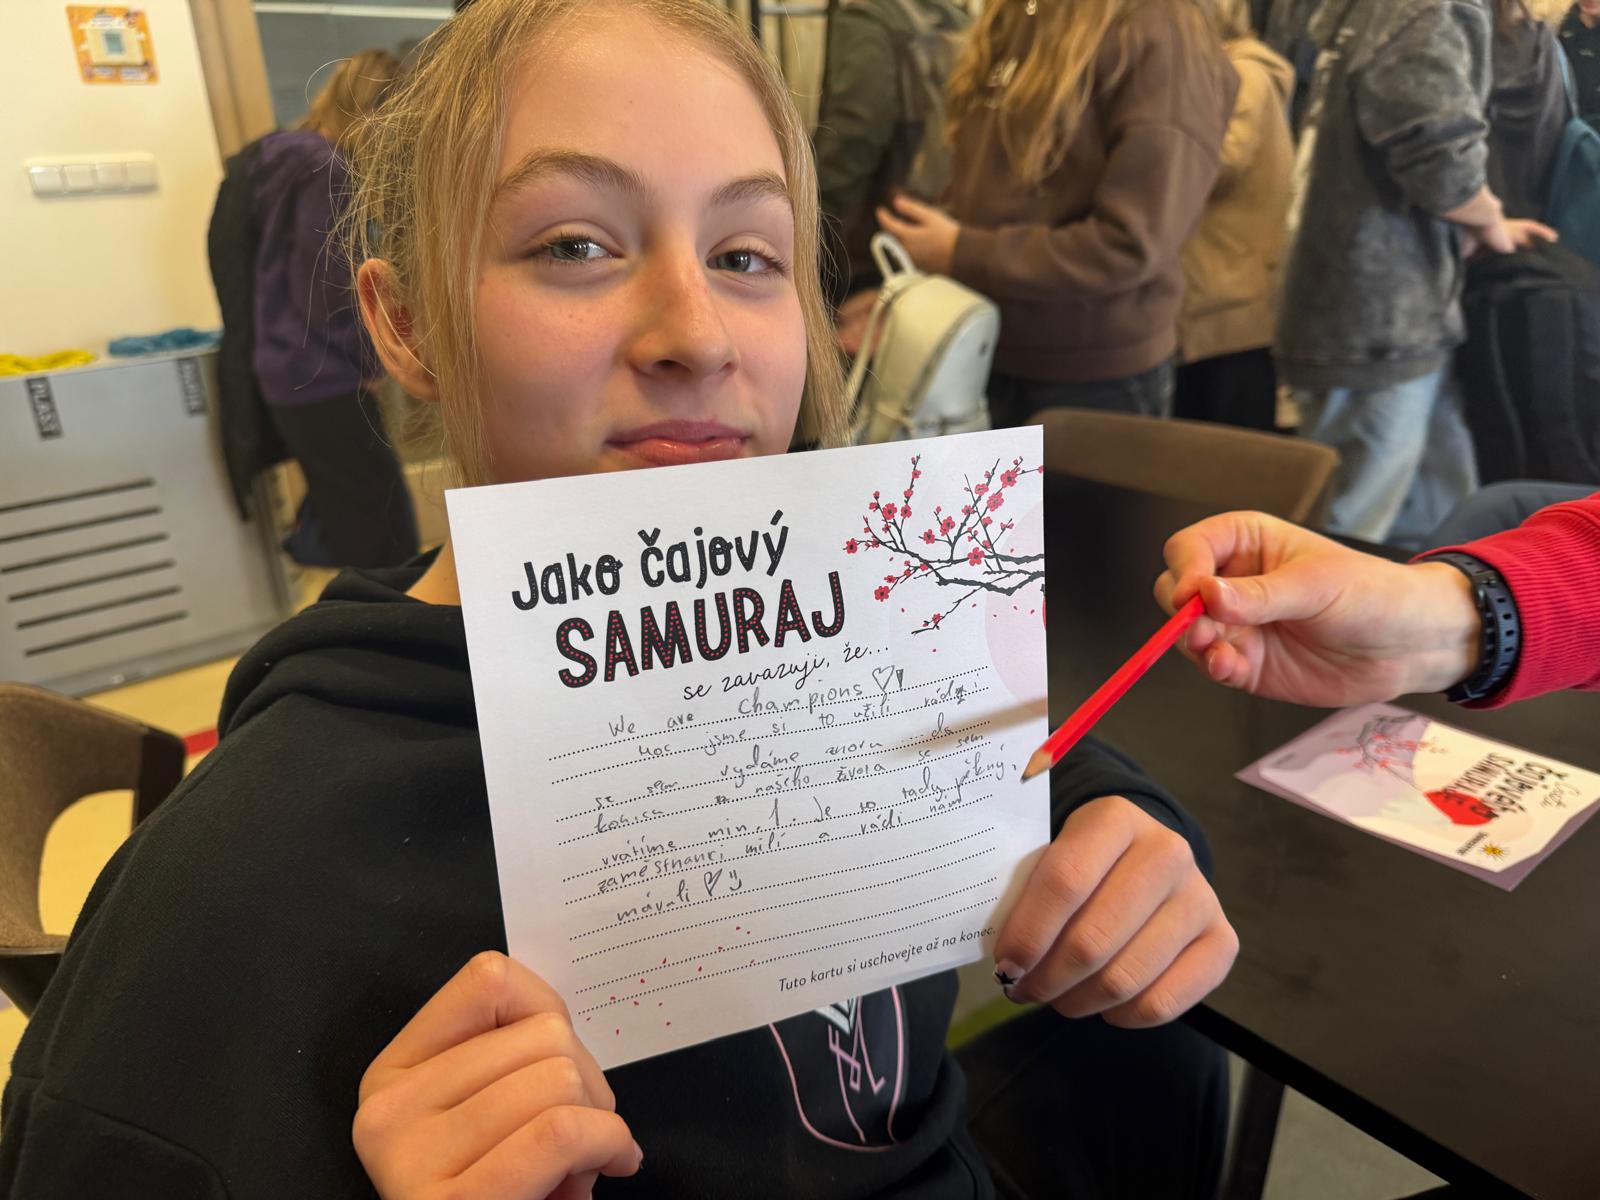 Jako čajový
SAMURAJ
se zavazuji, že...
We are Champions
Moc jsme si to užili rádi
se sem vydáme znovu ... do
konce našeho života se sem
vrátíme min. 1. Je to tady pěkný,
zaměstnanci milí a rádi nám
mávali
Tuto kartu si uschovejte až na konec.
PLAST
Cesta
čajového
SAMURAJE